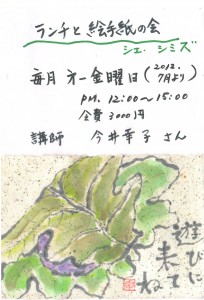 ランチと絵手紙の会
シェ・シミズ
毎月 才一金曜日(2012.7月より)
P.M. 12:00〜15:00
会費 3000円
講師 今井幸子さん
遊びに
来て
ね